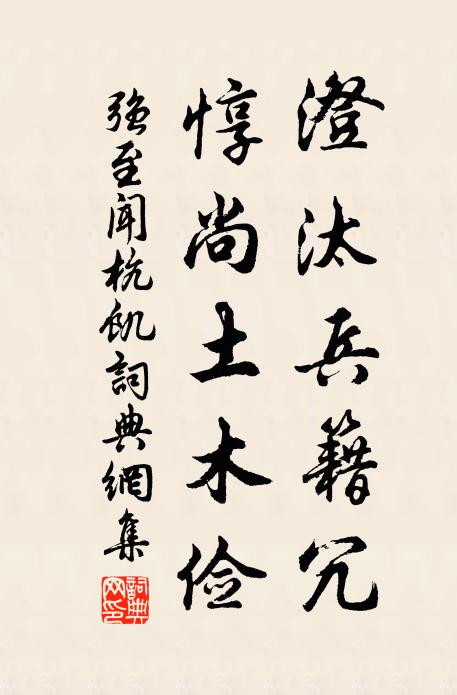 澄汰兵籍冗
惇尚土木俭
强至闻杭饥詞典網集
詞典网印